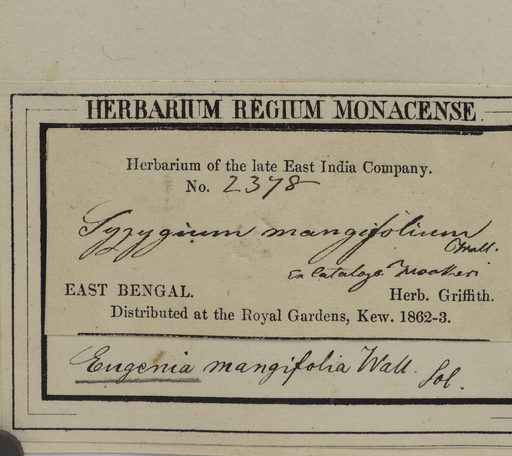 HERBARIUM REGIUM MONACENSE.
Herbarium of the late East India Company.
No. 2378
Syzygium mangifolium
Wall.
Ex Catalogo Hookeri
EAST BENGAL. Herb. Griffith.
Distributed at the Royal Gardens, Kew. 1862-3.
Eugenia mangifolia Wall.